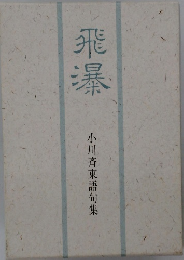 飛瀑
小川斉東語句集